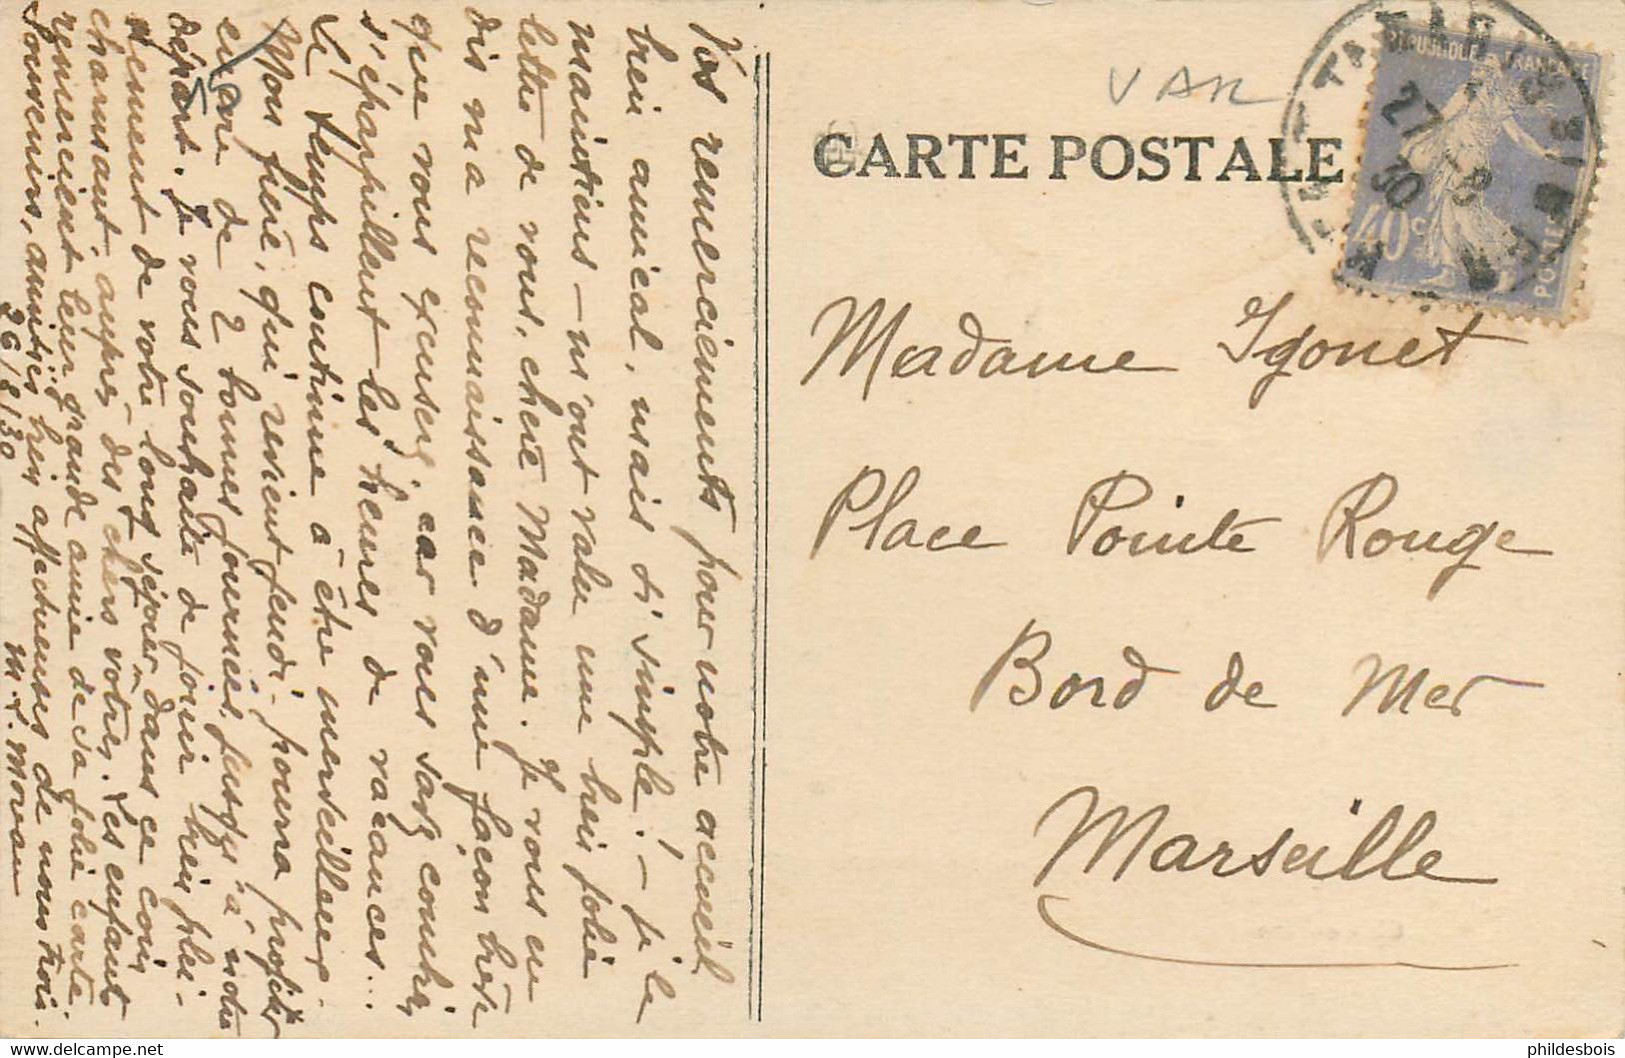 VAR
CARTE POSTALE
RÉPUBLIQUE FRANÇAISE
27
8
30
40c
POSTES
Madame Igonet
Place Pointe Rouge
Bord de Mer
Marseille
Vos remerciements pour notre accueil
bien amical, mais si simple! – je le
maintiens – m'ont valu une bien jolie
lettre de vous, chère Madame. Je vous en
dis ma reconnaissance d'une façon brève
que vous excuserez, car vous savez combien
s'éparpillent les heures de vacances...
Le temps continue à être merveilleux.
Mon frère, qui revient jeudi, pourra profiter
encore de 2 bonnes journées, jusqu'à notre
départ. Je vous souhaite de jouir bien plei-
nement de votre long séjour dans ce coin
charmant, auprès des chers vôtres. Les enfants
remercient leur grande amie de sa jolie carte.
Souvenirs, amitiés bien affectueuses de nous trois.
26/8/30 M. L. Morvan
phildesbois
www.delcampe.net